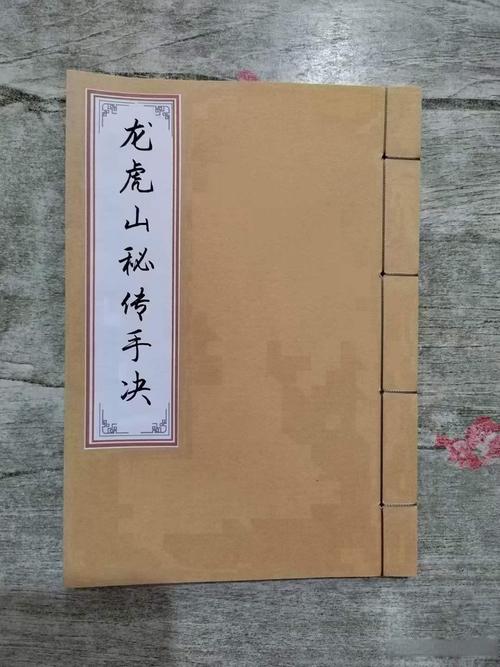 龙虎山秘传手决